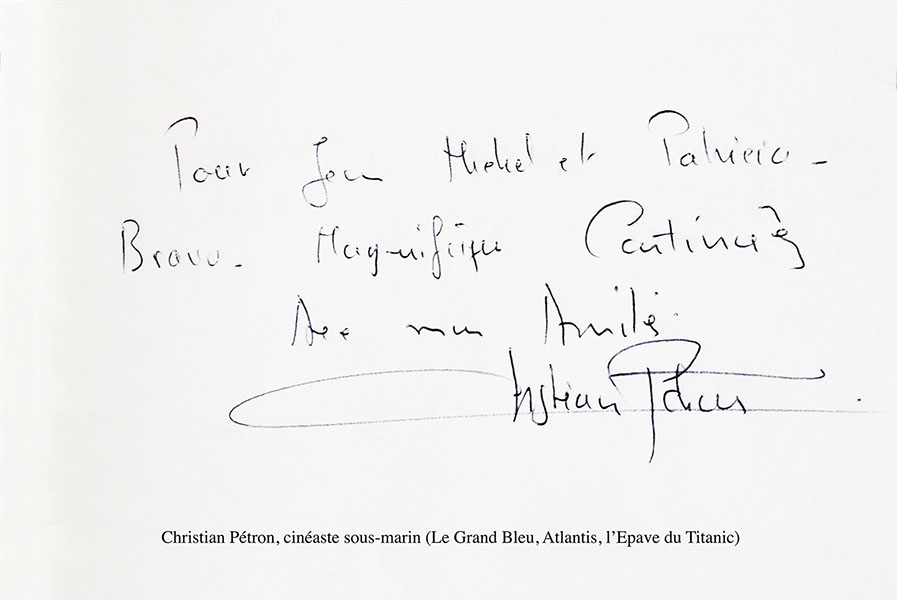 Pour Jean Michel et Patricia -
Bravo - Magnifique Continuez
Avec mon Amitié.
Christian Pétron
Christian Pétron, cinéaste sous-marin (Le Grand Bleu, Atlantis, l'Epave du Titanic)